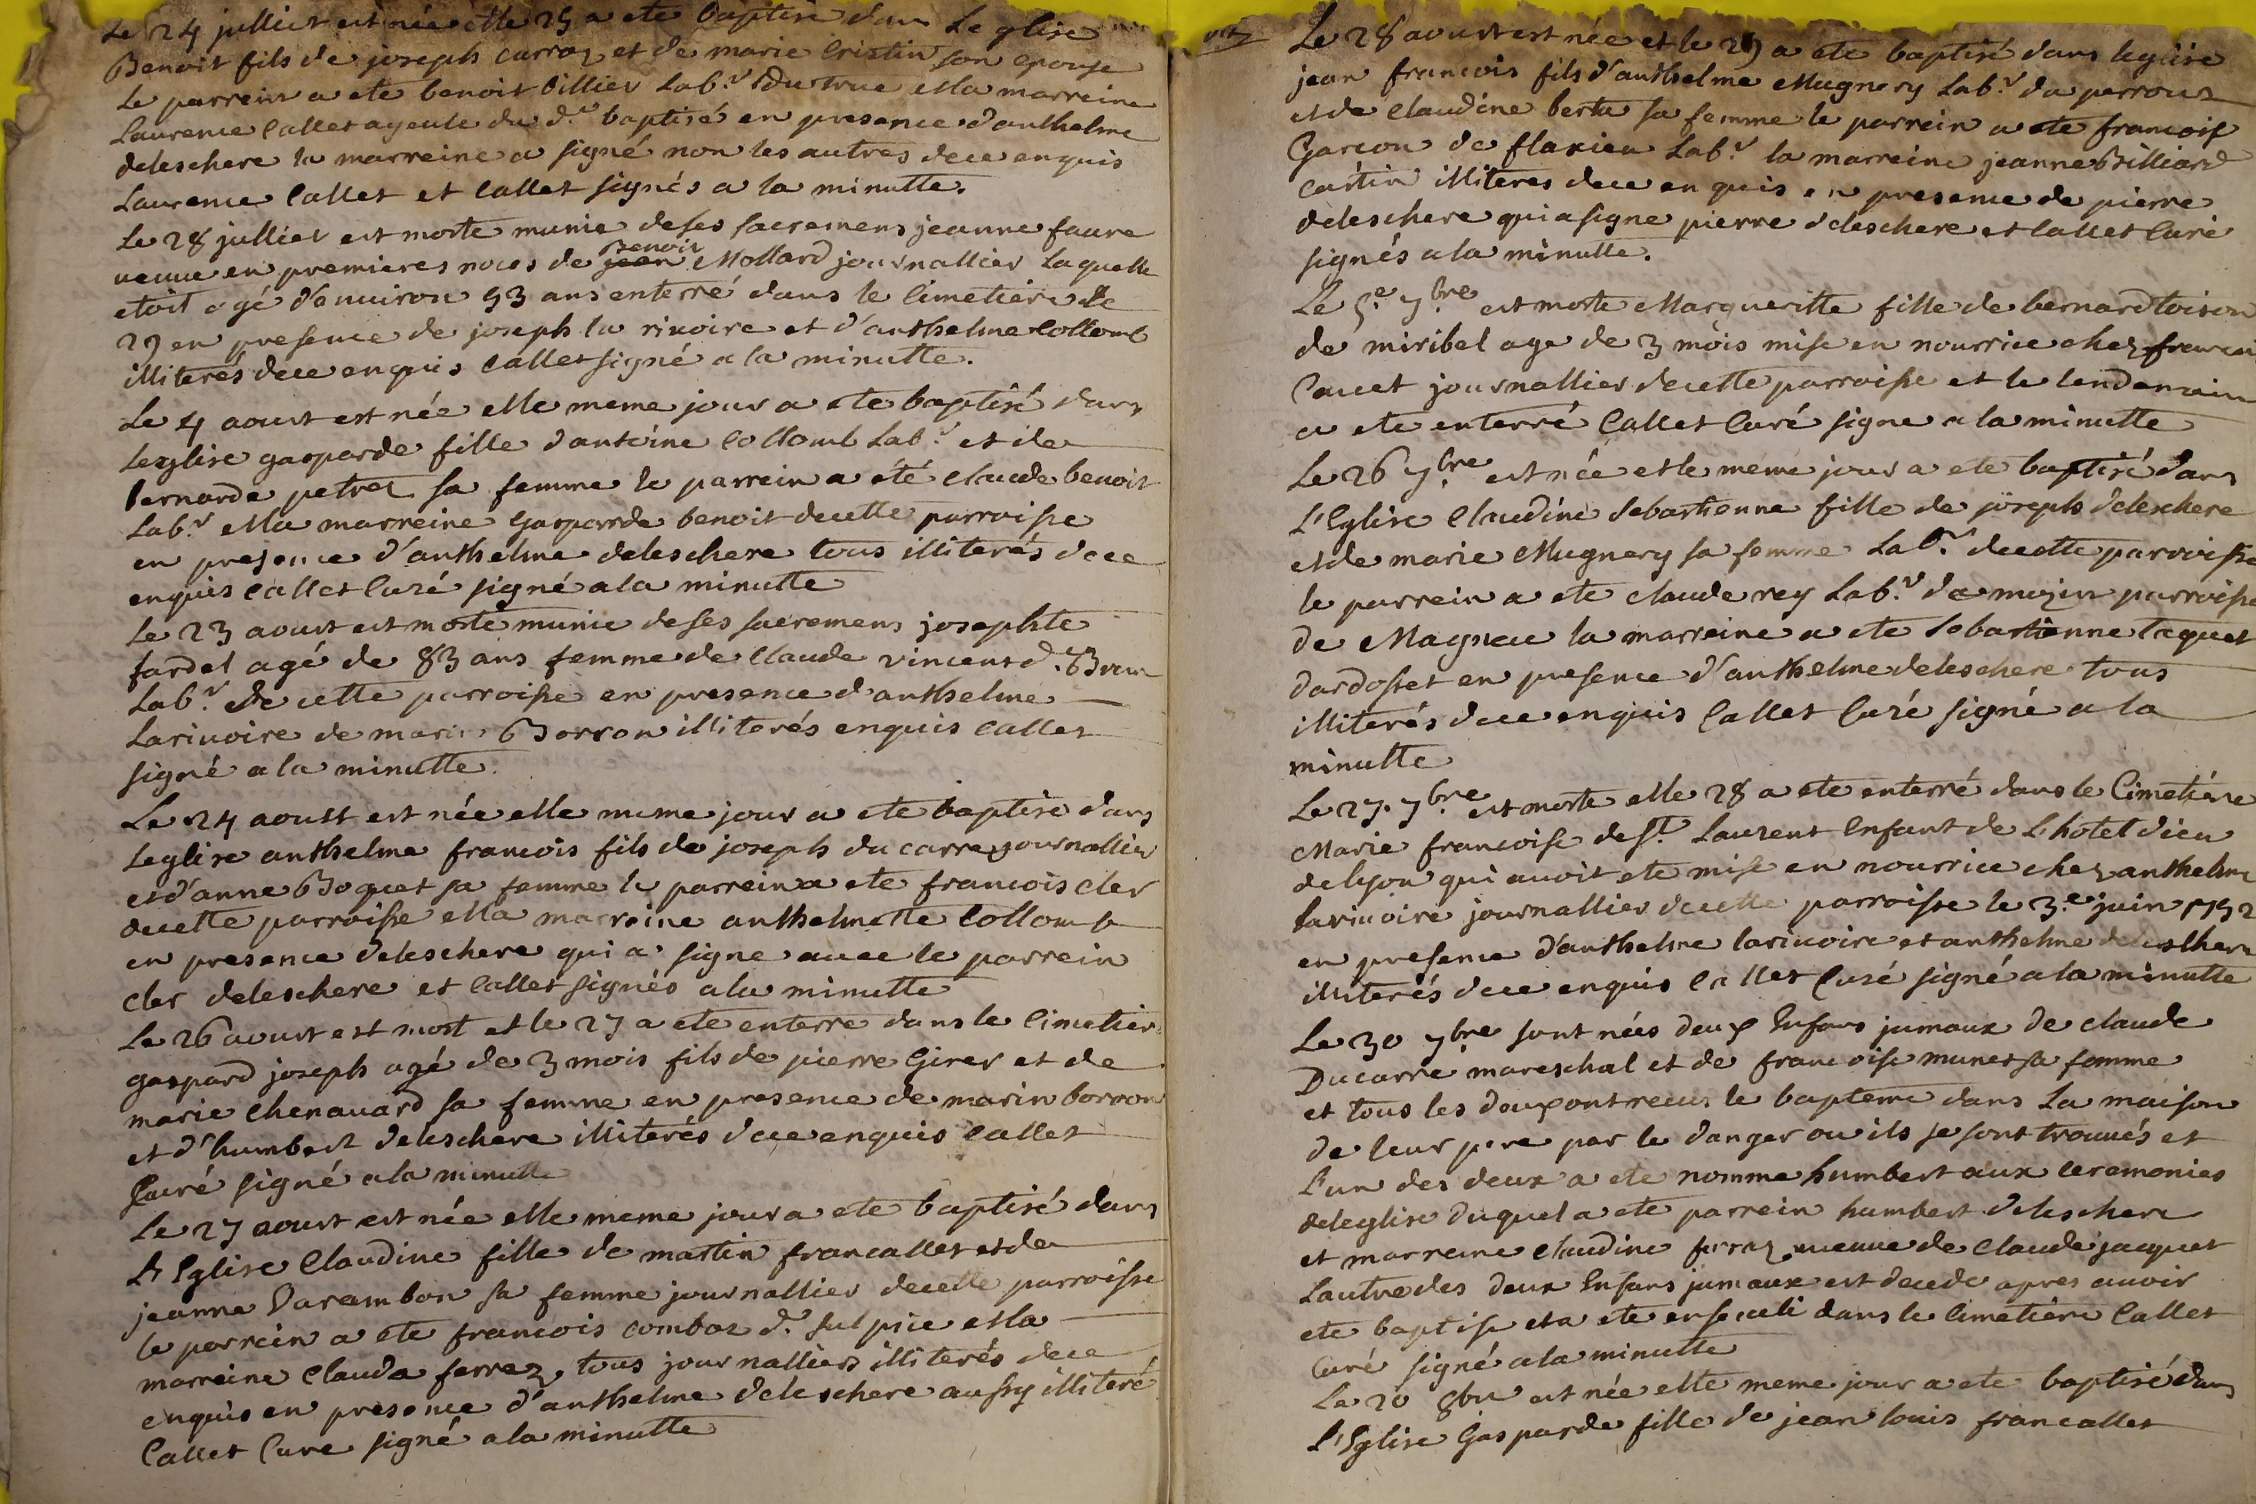 Le 24 julliet est née et le 25 a ete baptisé dans Leglise
Benoit fils de joseph carraz et de marie Cristin son epouse
Le parrein a ete benoit billiet Lab.r et la marreine
Laurence Callet ayeule du d.t baptisé en presence d'anthelme
deleschere la marreine a signé non les autres de ce enquis
Laurence Callet et Callet signés a la minutte.
Le 28 julliet est morte munie de ses sacremens jeanne faure
veuve en premieres noces de Benoit Mollard journallier Laquelle
etoit agé d'environ 53 ans enterré dans le Cimetiere Le
29 en presence de joseph la rivoire et d'anthelme Collomb
illiterés de ce enquis Callet signé a la minutte.
Le 4 aoust est née et le meme jour a ete baptisé dans
Leglise gasparde fille d'antoine Collomb Lab.r et de
bernarde petret sa femme le parrein a été claude benoit
Lab.r et la marreine Gasparde benoit de cette parroisse
en presence d'anthelme deleschere tous illiterés de ce
enquis Callet Curé signé a la minutte
Le 23 aoust est morte munie de ses sacremens josephte
fardel agé de 83 ans femme de Claude vincent d.
Lab.r de cette parroisse en presence d'anthelme
Larivoire de marin Borron illiterés enquis Callet
signé a la minutte.
Le 24 aoust est née et le meme jour a ete baptisé dans
Leglise anthelme francois fils de joseph du carre journallier
et d'anne Boquet sa femme le parrein a ete francois cler
de cette parroisse et la marreine anthelmette Collomb
en presence deleschere qui a signe avec le parrein
cler deleschere et Callet signés a la minutte
Le 26 aoust est mort et le 27 a ete enterre dans le Cimetier
gaspard joseph agé de 3 mois fils de pierre Giret et de
marie Chenavard sa femme en presence de marin borron
et d'humbert deleschere illiterés de ce enquis Callet
Curé signé a la minutte
Le 27 aoust est née et le meme jour a ete baptisé dans
L'Eglise Claudine fille de martin francallet et de
jeanne Darambon sa femme journallier de cette parroisse
le parrein a ete francois combaz d. sulpice et la
marreine Clauda ferraz tous journalliers illiterés de ce
enquis en presence d'anthelme deleschere aussy illiteré
Callet Cure signé a la minutte
Le 28 aoust est née et le 29 a ete baptisé dans leglise
jean francois fils d'anthelme Mugnery Lab.r du perrouz
et de Claudine berta sa femme le parrein a ete francois
Garcon de flaxieu Lab.r la marreine jeanne Billiard
Castin illiteres de ce enquis en presence de pierre
deleschere qui a signe pierre deleschere et Callet Curé
signés a la minutte.
Le 5.e 7.bre est morte Margueritte fille de bernard loison
de miribel age de 3 mois mise en nourrice chez francoi
Caucet journallier de cette parroisse et le lendemain
a ete enterré Callet Curé signe a la minutte
Le 26 7.bre est née et le meme jour a ete baptisé dans
L'Eglise Claudine Sebastienne fille de joseph deleschere
et de marie Mugnery sa femme Lab.r de cette parroisse
le parrein a ete claude rey Lab.r de muzin parroisse
de Magneu la marreine a ete Sebastienne taquet
dardosset en presence d'anthelme deleschere tous
illiterés de ce enquis Callet Curé signé a la
minutte
Le 27. 7.bre est morte et le 28 a ete enterré dans le Cimetiére
Marie francoise de S.t Laurent Enfant de L'hotel dieu
de lyon qui avoit ete mise en nourrice chez anthelme
larivoire journallier de cette parroisse le 3.e juin 1752
en presence d'anthelme larivoire et anthelme deleschere
illiterés de ce enquis Callet Curé signé a la minutte
Le 30 7bre sont nées deux Enfans jumaux de claude
Ducarre mareschal et de francoise munet sa femme
et tous les deux ont recus le bapteme dans La maison
de leur pere par le danger ou ils se sont trouvés et
L'un des deux a ete nomme humbert aux ceremonies
de leglise duquel a ete parrein humbert deleschere
et marreine Claudine ferraz veuve de Claude jacquet
Lautre des deux Enfans jumaux est decede apres avoir
ete baptise et a ete enseveli dans le Cimetiére Callet
Curé signé a la minutte
Le 20 8bre est née et le meme jour a ete baptisé dans
L'Eglise Gasparde fille de jean louis francallet